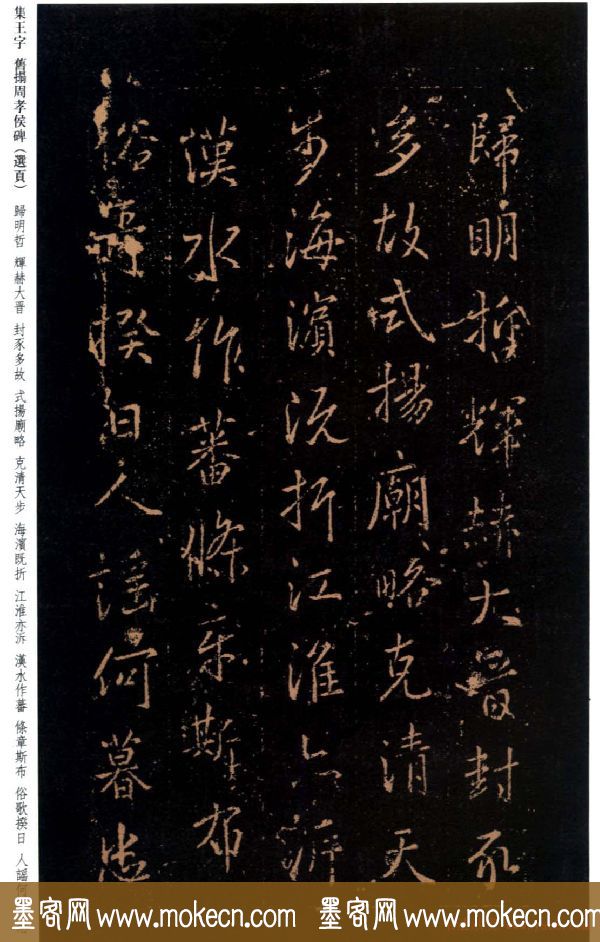 歸明哲輝赫大晉封豕
多故式揚廟略克清天
步海濱既折江淮亦泝
漢水作蕃條章斯布
俗歌揆日人謠何暮
集王字 舊搨周孝侯碑（選頁） 歸明哲 輝赫大晉 封豕多故 式揚廟略 克清天步 海濱既折 江淮亦泝 漢水作蕃 條章斯布 俗歌揆日 人謠何
墨客网 www.mokecn.com 墨客网 www.mokecn.com